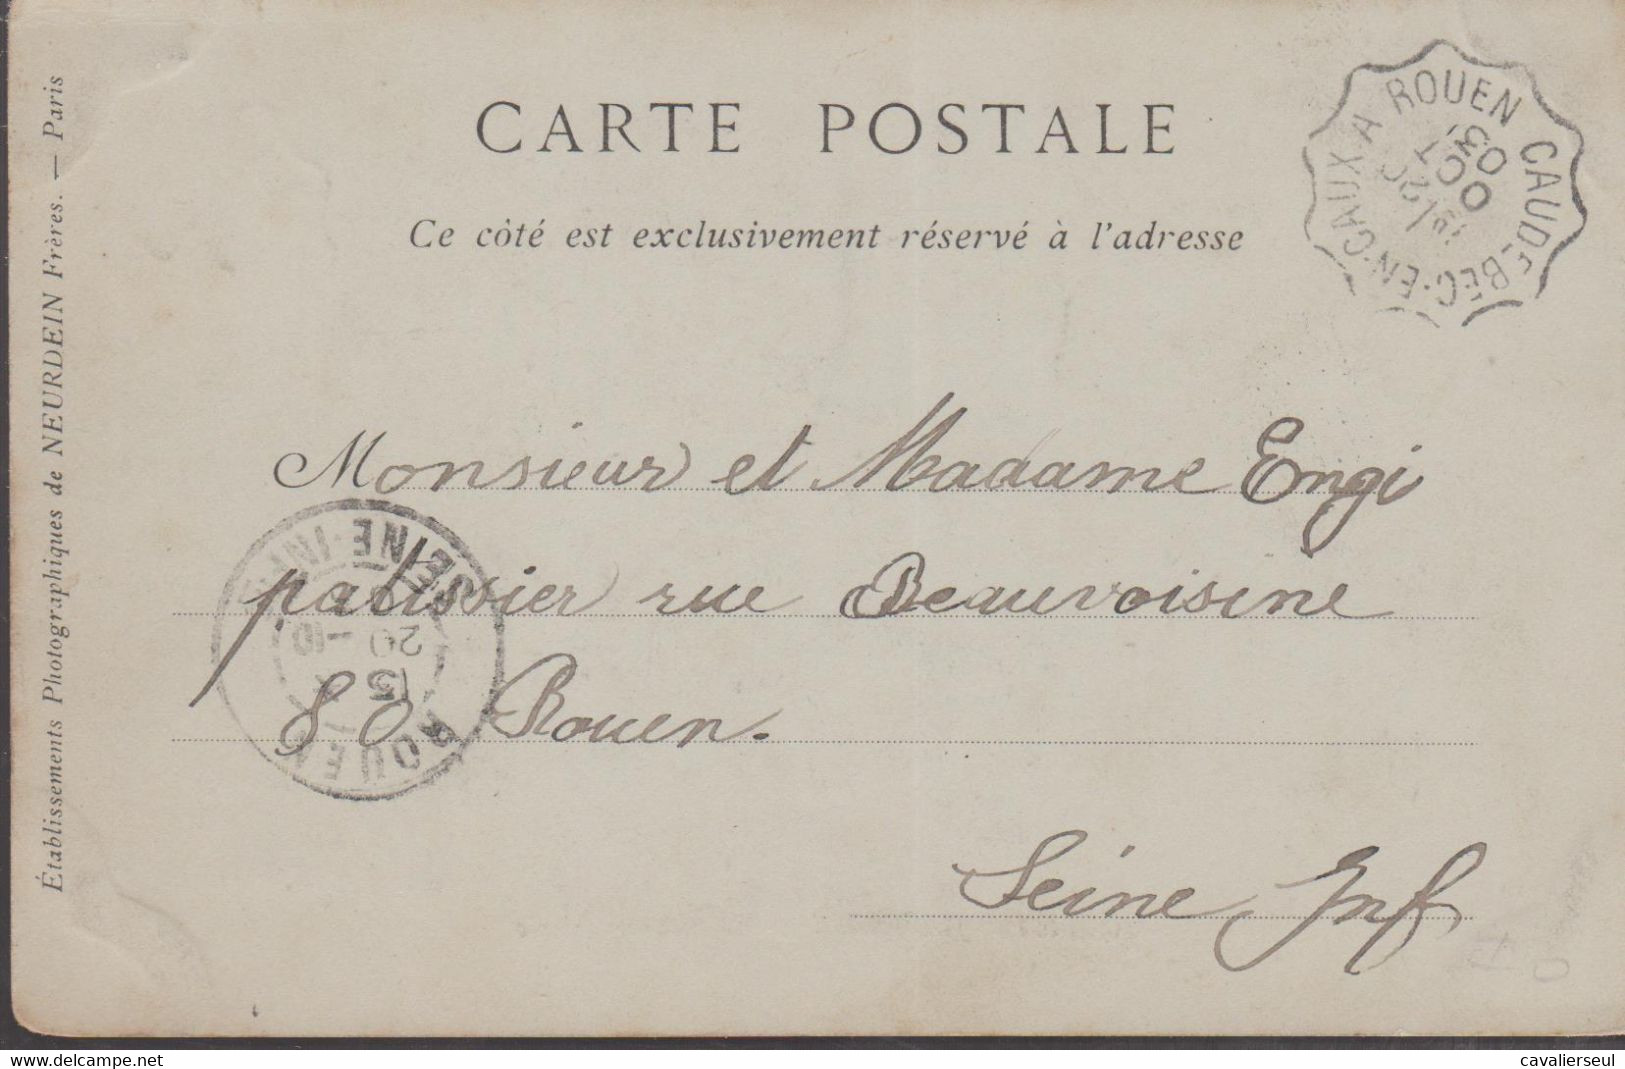 CARTE POSTALE
Ce côté est exclusivement réservé à l'adresse
Établissements Photographiques de NEURDEIN Frères. — Paris
CAUDEBEC-EN-CAUX A ROUEN
OCT
03
Monsieur et Madame Engi
patissier rue Beauvoisine
80 Rouen.
Seine Inf
ROUEN
SEINE-INF
20
delcampe.net
cavalierseul